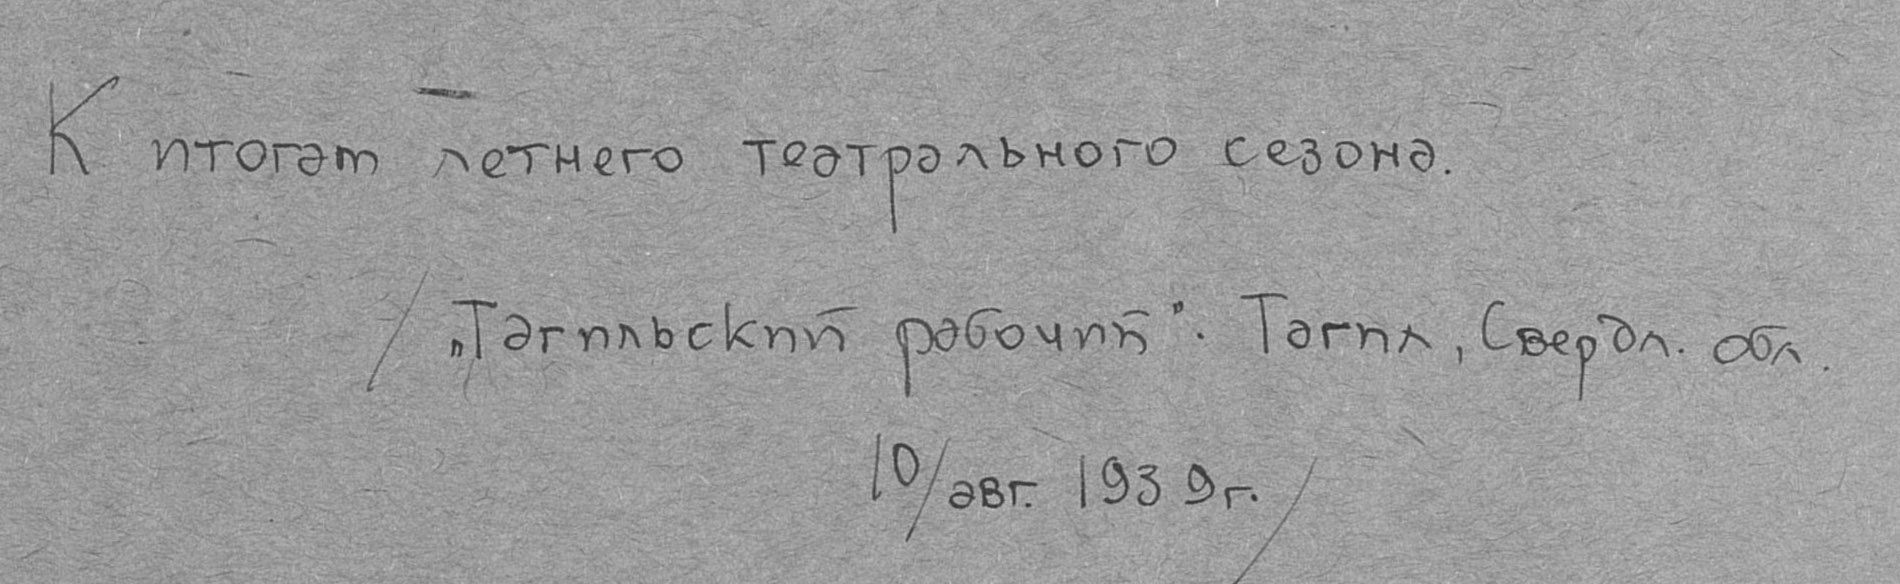 К итогам летнего театрального сезона.
/„Тагильский рабочий“. Тагил, Свердл. обл.
10/авг. 1939г./